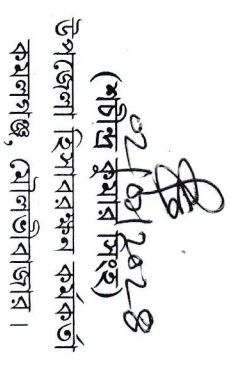 ০১/০১/২০২৪
(শচীন্দ্র কুমার সিংহ)
উপজেলা হিসাবরক্ষন কর্মকর্তা
কমলগঞ্জ, মৌলভীবাজার।